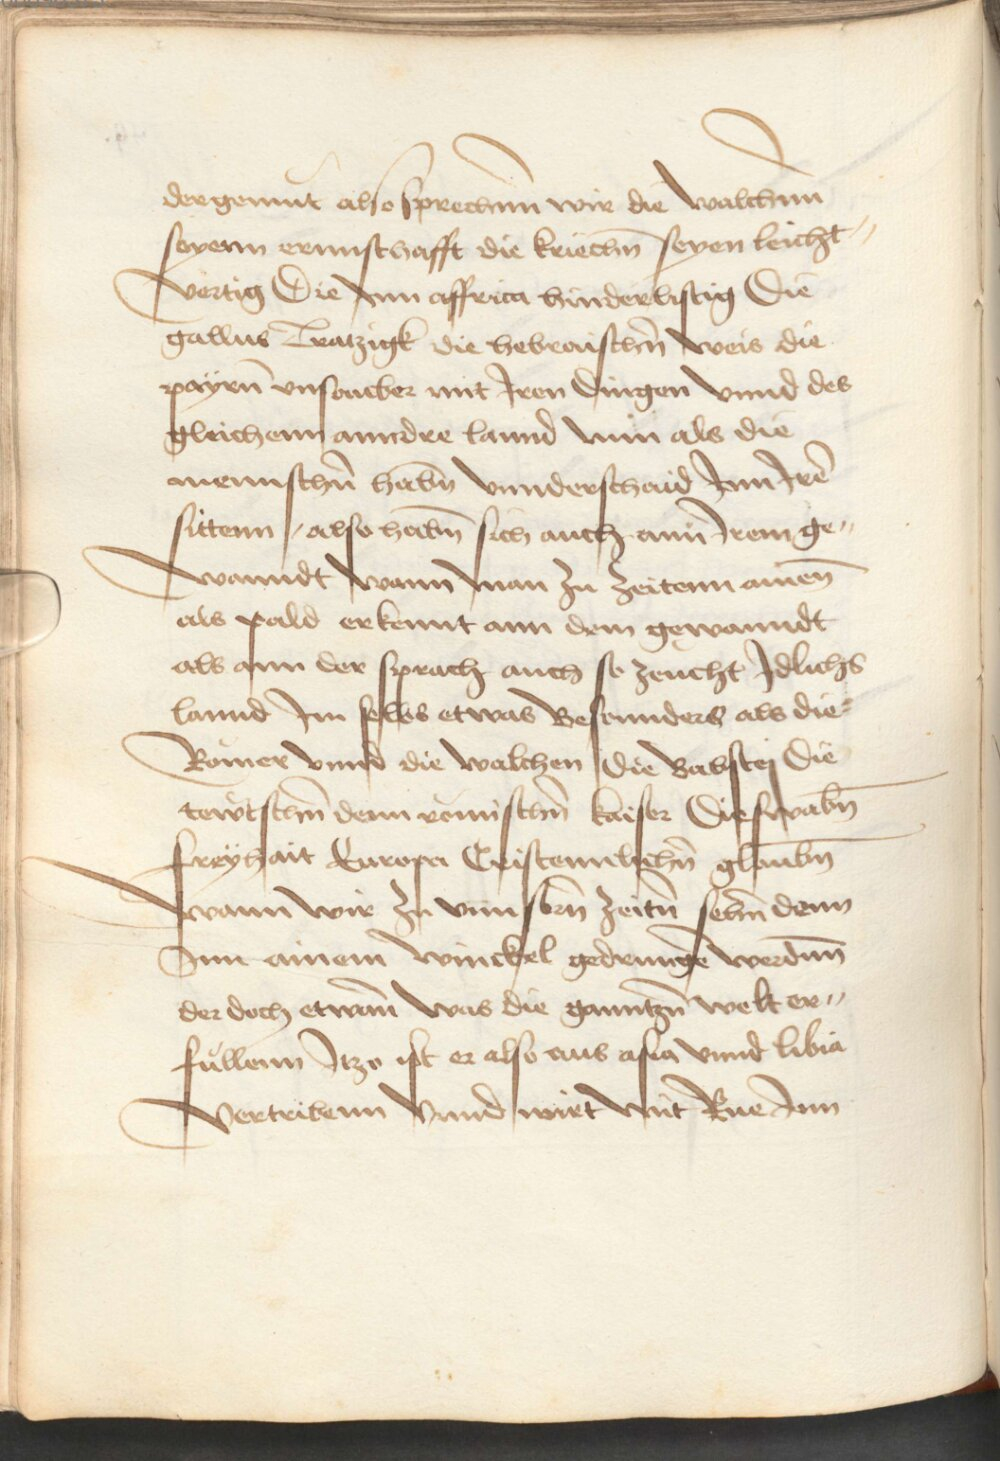 der gemut also sprechenn wir die walchenn
seyenn ernnschafft die kriechn̄ seyen leicht〃
vertig Die Inn affrica hinderlistig Die
gallus Tratzigk die hebraischn̄ weis die
payrn̄ vnsauber mit Iren dingen vnnd des
gleichenn anndre lannd Nun als die
mennschn̄ habn̄ vnnderschaid Inn Irē
sittenn / also habn̄ sich auch ann Irem ge〃
wanndt wann man zu Zeitenn ainen̄
als pald erkennt ann dem gewanndt
als ann der sprach auch so zeucht Idlichs
lannd Im selbs etwas Besonnders als die
Römer vnnd die walchen die Babstej Die
tewtschn̄ denn römischn̄ kaiser Die swabn̄
freyhait Europa Cristennlichn̄ glaubn̄
wann wir zu vnnsern̄ zeitn̄ sehn̄ denn
Inn ainem winckel gedrungē werdenn̄
der doch etwan̄ was die ganntzn̄ welt er〃
füllenn Itzo ist er also aus asia vnnd libia
Vertribenn Vnnd wirt mit Rue Inn